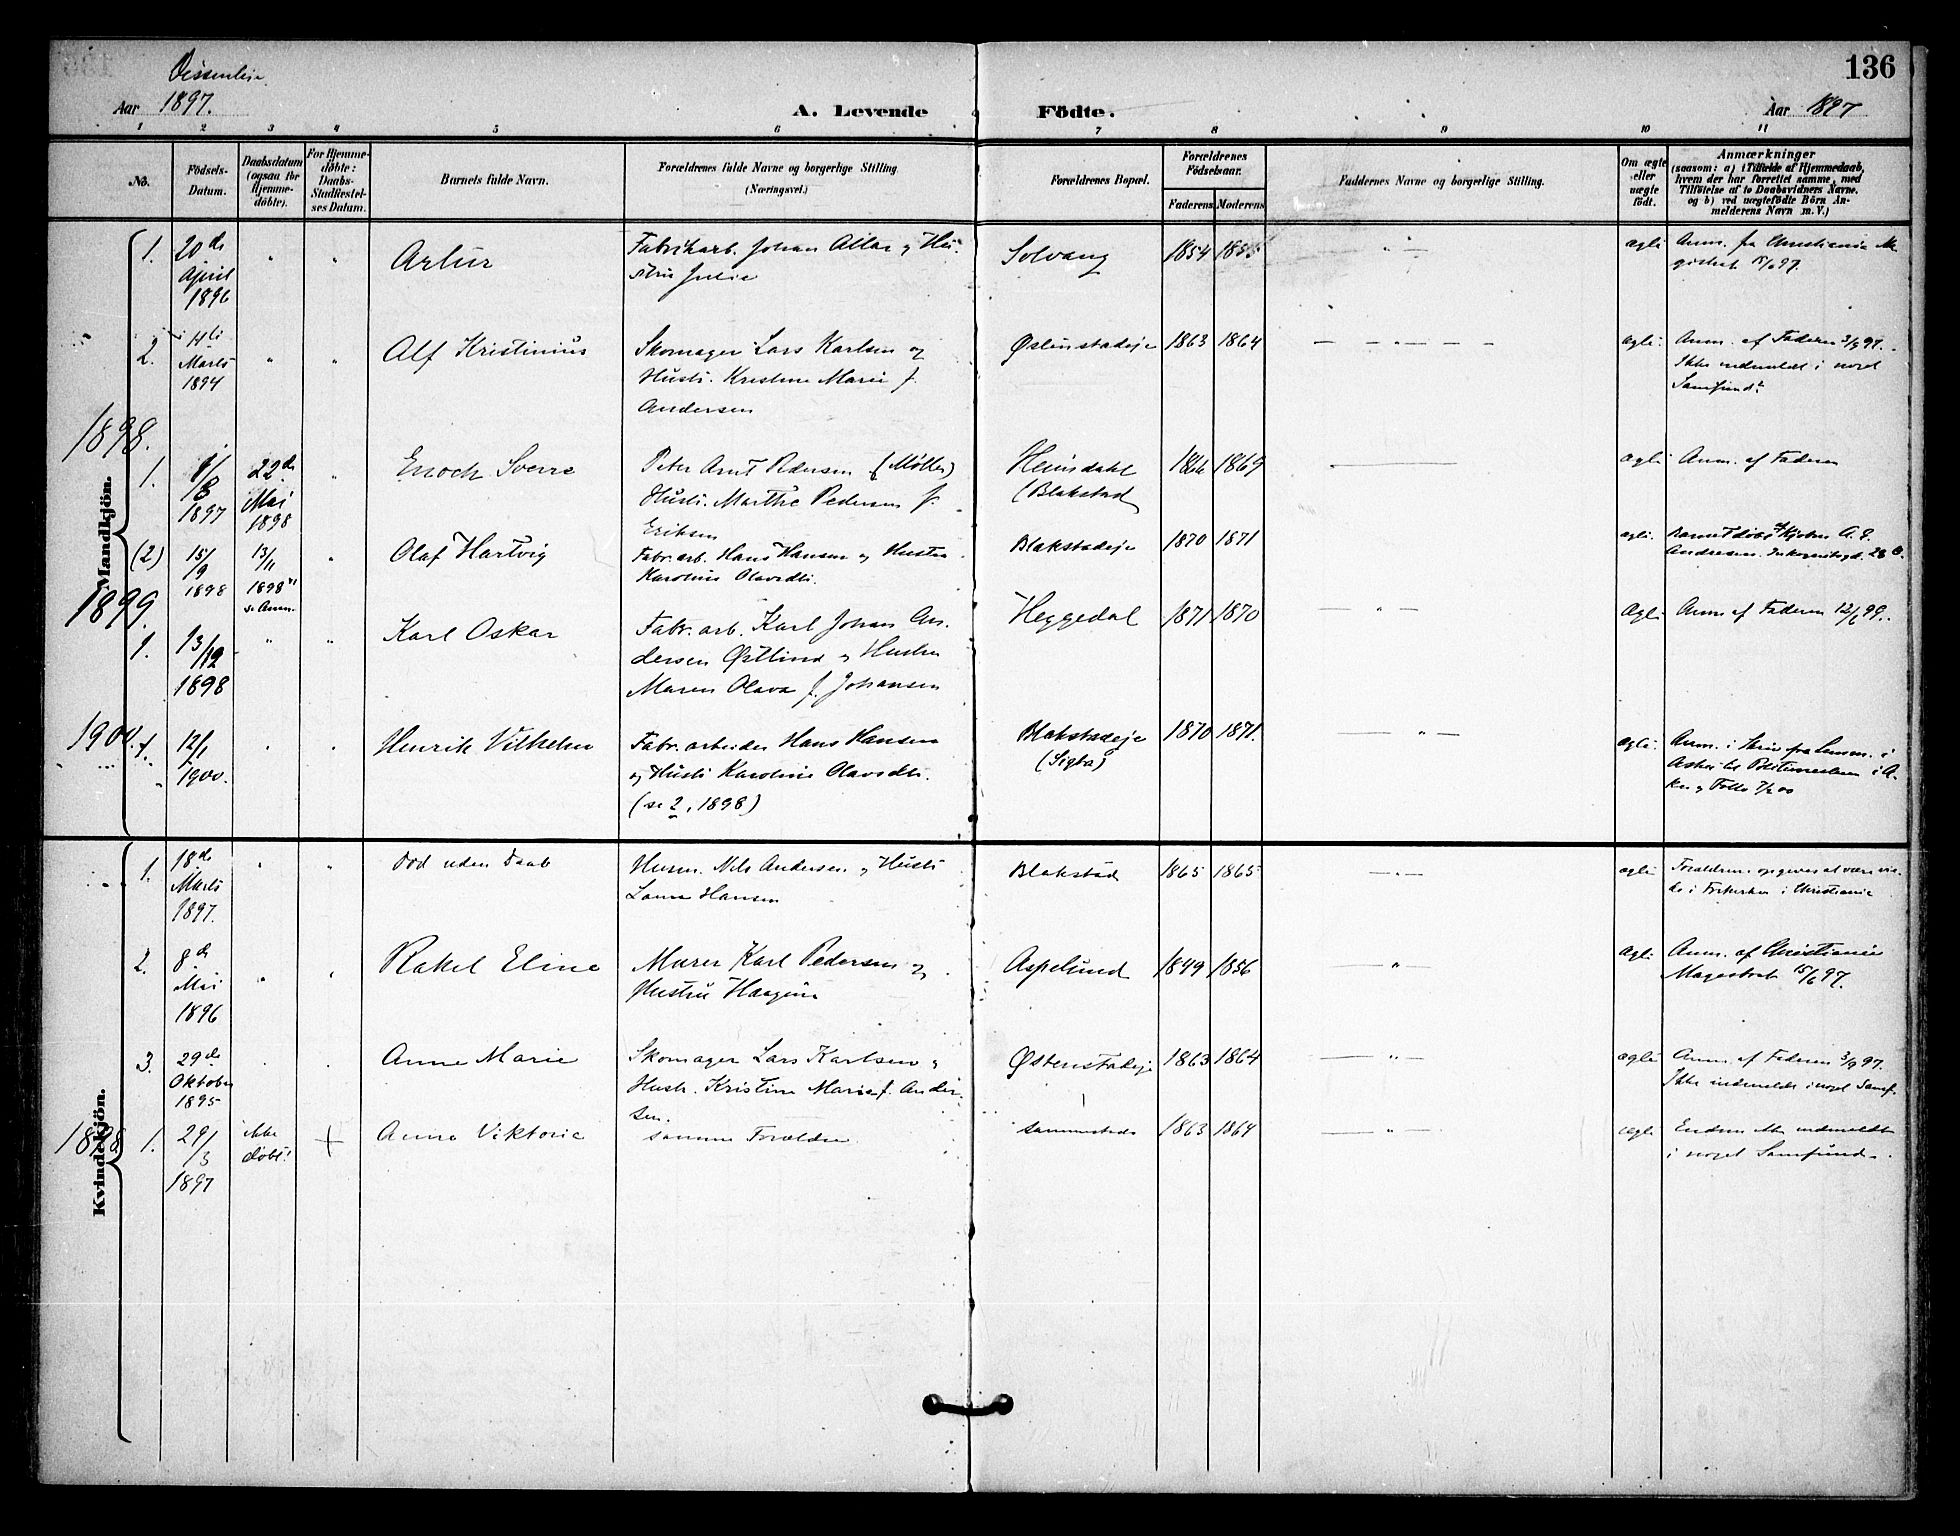 136
Aar 1897.
A. Levende Födte.
Aar 1897
1 2 3 4 5 6 7 8 9 10 11
No.
Födsels-
Datum.
Daabsdatum
(ogsaa for
Hjemme-
döbte).
For Hjemme-
döbte:
Daabs-
Stadfæstel-
ses Datum.
Barnets fulde Navn.
Forældrenes fulde Navne og borgerlige Stilling
(Næringsvei.)
Forældrenes Bopæl.
Forældrenes
Födselsaar.
Faderens Moderens
Faddernes Navne og borgerlige Stilling.
Om ægte
eller
uægte
født.
Anmærkninger
(saasom: a) i Tilfælde af Hjemmedaab,
hvem der har forrettet samme, med
Tilföielse af to Daabsvidners Navne.
og b) ved uægtefödte Börn An-
melderens Navn m. V.)
Mandkjön.
1. 20de April 1896 " " Artur
Fabrikarb. Johan og Hu-
stru Julie
Solvang 1854 1855 — " —
ægte Anm. fra Christiania
97.
2. 4de Marts 1894 " " Alf Kristinius
Skomager Lars Karlsen og
Hustr. Kristine Marie f.
Andersen
1863 1864 — " — —
ægte Anm. af Faderen 3/9 97.
Ikke indmeldt i noget
Samfund
1898.
1. 1/8 1897 22de Mai 1898 " Enoch Sverre
Peter Arnt Pedersen (Møller)
Hustr. Marthe Pedersen f.
Eriksen
Heimsdahl
(Blakstad
1866 1869 ———
ægte Anm. af Faderen
(2) 15/9 1898 13/11 1898 se Anm. " Olaf Hartvig
Fabr. arb. Hans Hansen og Hustru
Karoline Olavsdtr.
Blakstadeje 1870 1871
ægte Barnet døbt af A. E.
Andresen.
1899.
1. 13/12 1898 " " Karl Oskar
Fabr. arb. Karl Johan An-
dersen Østlind og Hustru
Maren Olava f. Johansen
Heggedal 1871 1870 — " —
ægte Anm af Faderen 12/6 99.
1900.
1. 12/1 1900. " " Henrik Vilhelm
Fabr. arbeider Hans Hansen
og Hustr. Karoline Olavsdtr.
(se 2, 1898)
Blakstadeje
1870 1871. — " —
ægte Anm. i Skriv fra Lensm. i
Asker til Politimesteren i A-
ker og Follo 7/2 00
Kvindekjön.
1. 18de Marts 1897. " " død uden Daab
Husm. Nils Andersen og Hustr.
Hansen
Blakstad 1865 1865 — " —
ægte Forældrene opgives at være vie-
de i Frikirken i Christiania
2. 8de Mai 1896 " " Rakel Eline
Murer Karl Pedersen og
Hustru
Aspelund 1849 1856 — " —
ægte Anm. af Christiania
Magistrat 15/6 97.
3. 29de Oktober 1895 " " Anne Marie
Skomager Lars Karlsen og
Hustr. Kristine Marie f. Ander-
sen.
Østenstadeje 1863 1864 — " —
ægte Anm. af Faderen 3/9 97.
Ikke indmeldt i noget Samf.
1898
1. 29/3 1897 ikke døbt. + Anna Viktoria
samme Forældre
sammesteds 1863 1864 — " —
ægte indmeldt
i noget Samfund.